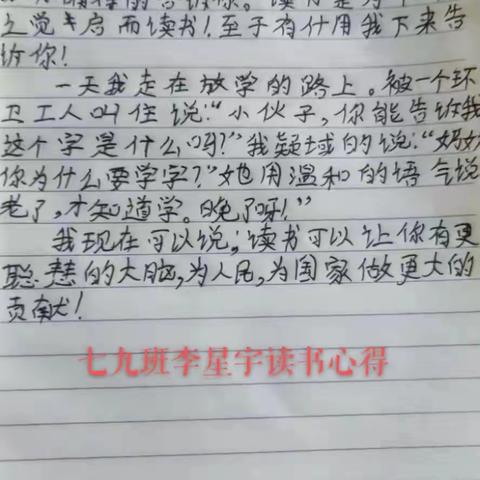 之觉启而读书！至于有什用我下来告
诉你！
一天我走在放学的路上。被一个环
卫工人叫住说:“小伙子,你能告诉我
这个字是什么吗?”我疑惑的说:“奶奶
你为什么要学字?”她用温和的语气说
老了,才知道学。晚了呀！”
我现在可以说,读书可以让你有更
聪慧的大脑,为人民,为国家做更大的
贡献！
七九班李星宇读书心得